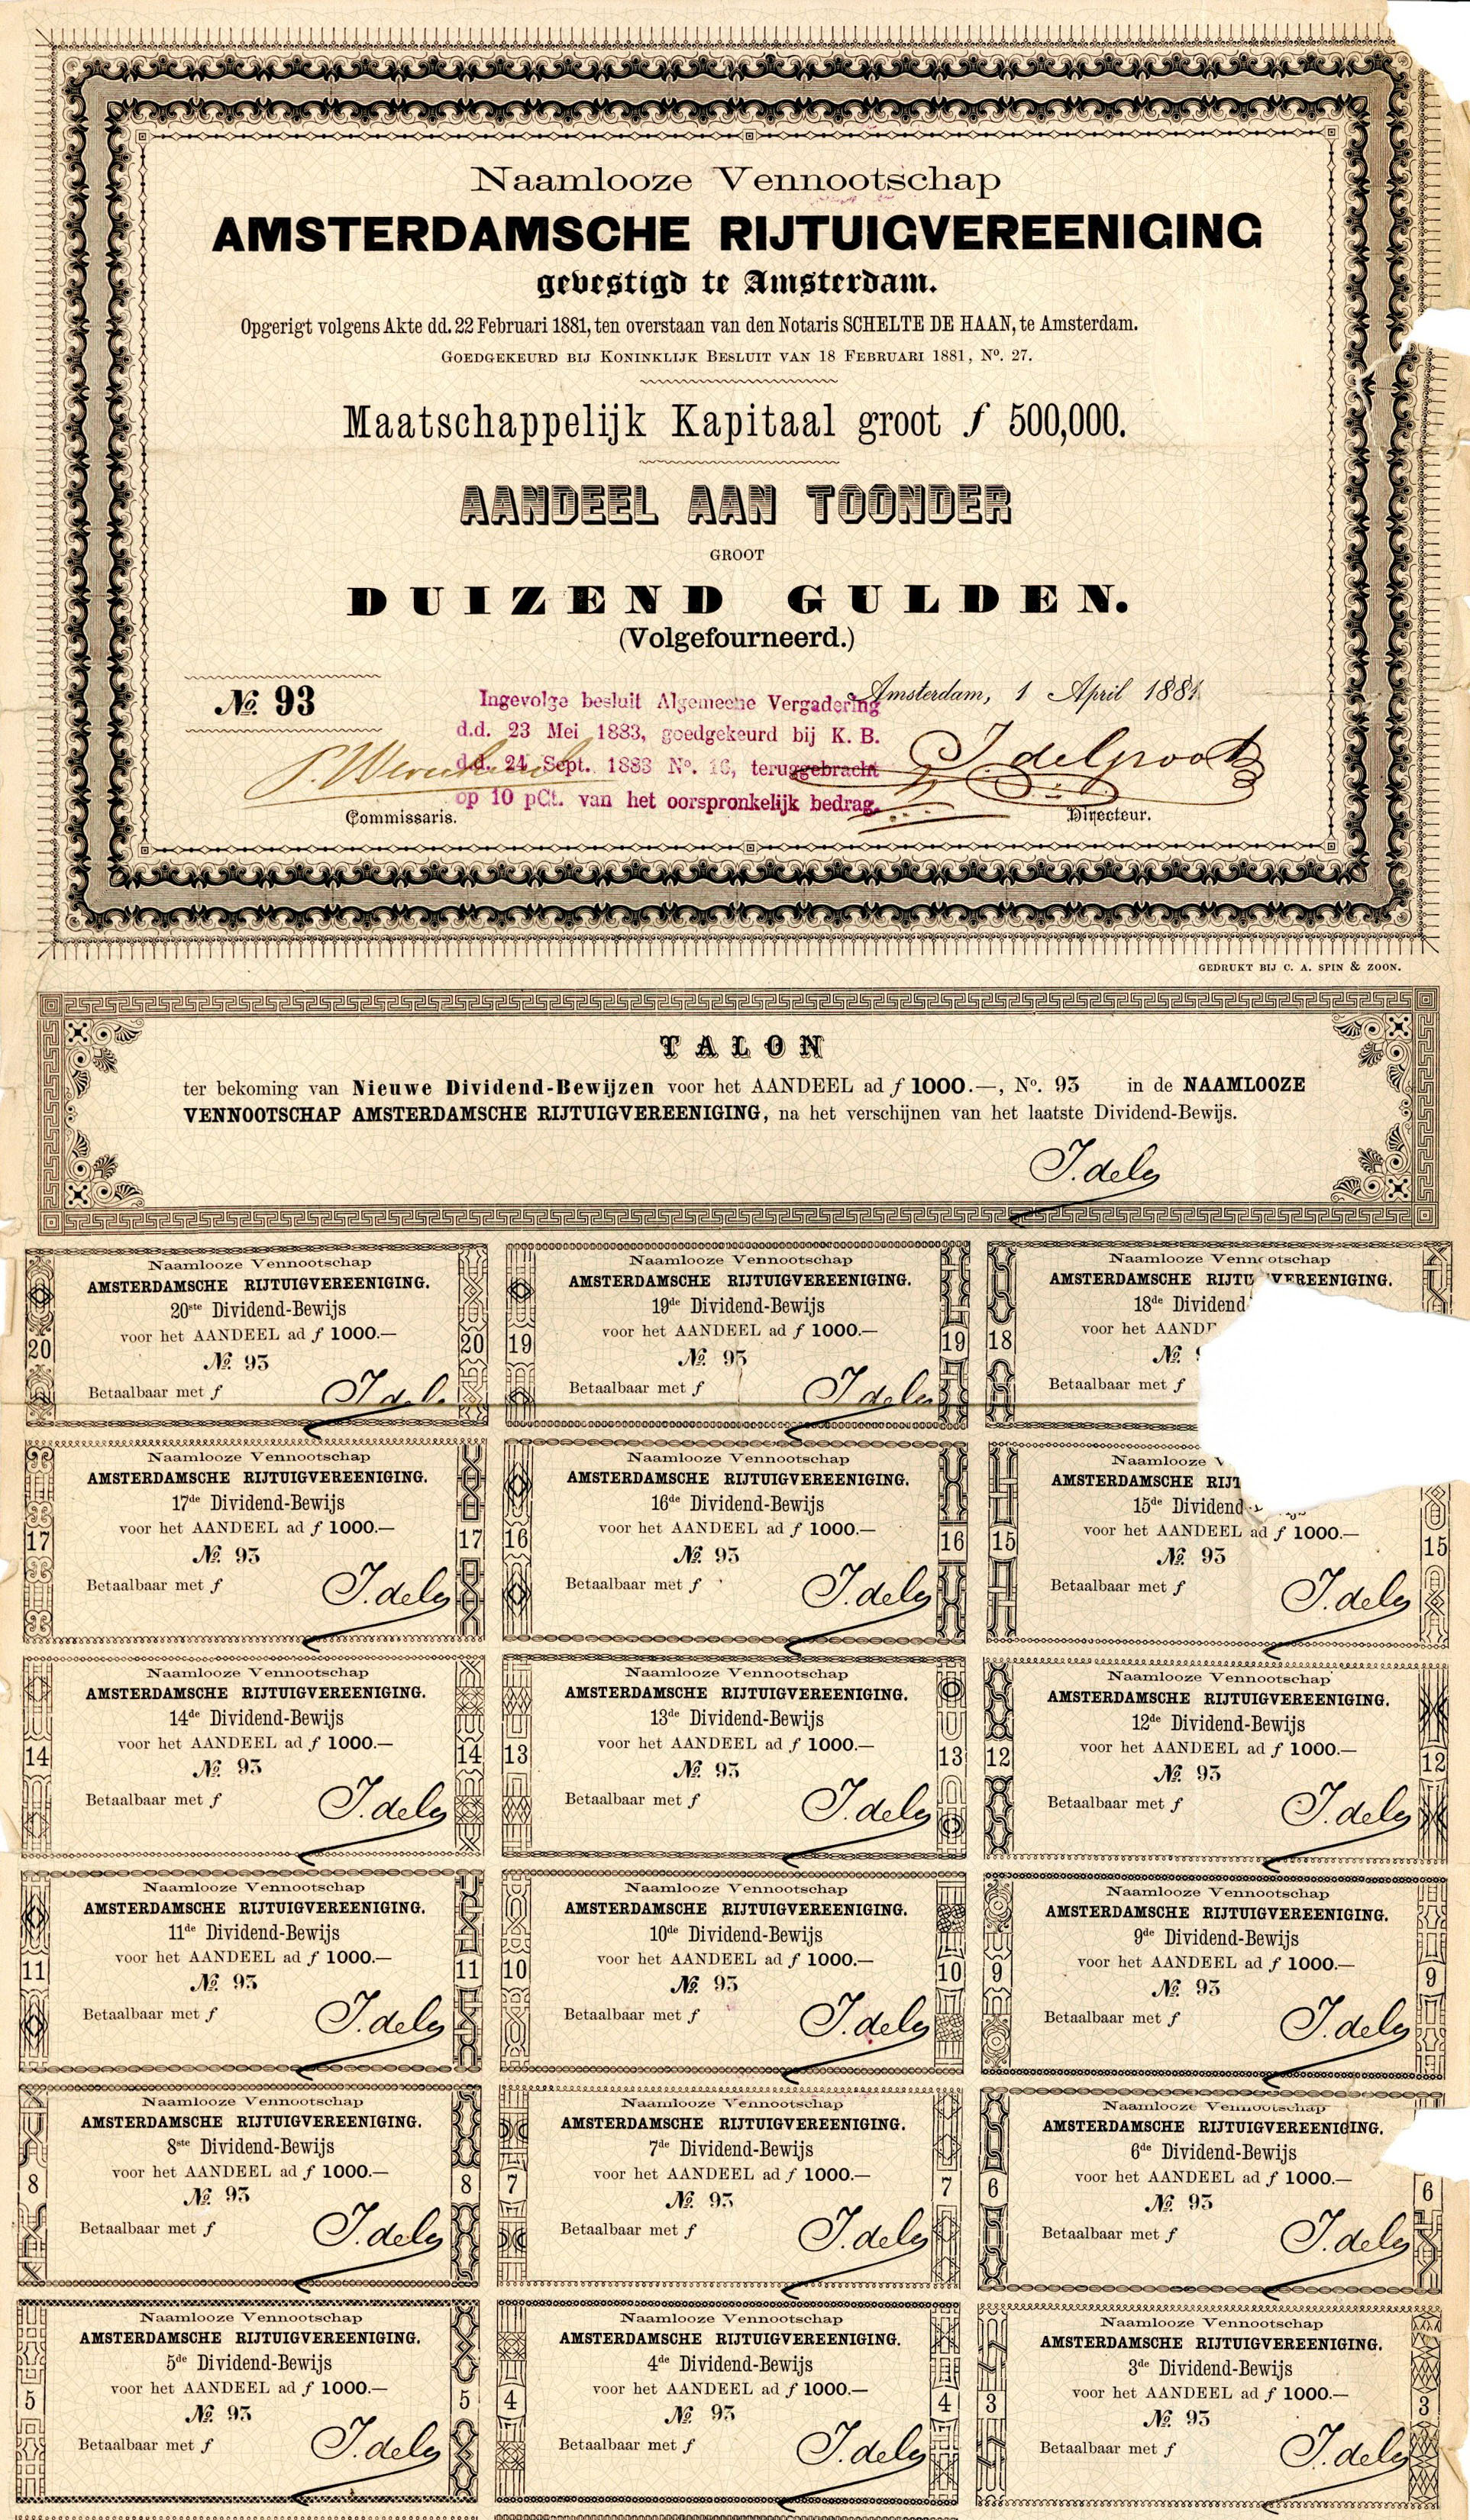 Naamlooze Vennootschap
AMSTERDAMSCHE RIJTUIGVEREENIGING
gevestigd te Amsterdam.
Opgerigt volgens Akte dd. 22 Februari 1881, ten overstaan van den Notaris SCHELTE DE HAAN, te Amsterdam.
GOEDGEKEURD BIJ KONINKLIJK BESLUIT VAN 18 FEBRUARI 1881, No. 27.
Maatschappelijk Kapitaal groot ƒ 500,000.
AANDEEL AAN TOONDER
GROOT
DUIZEND GULDEN.
(Volgefourneerd.)
No. 93
Amsterdam, 1 April 1881
Ingevolge besluit Algemeene Vergadering
d.d. 23 Mei 1883, goedgekeurd bij K. B.
d.d. 24 Sept. 1883 No. 16, teruggebracht
op 10 pCt. van het oorspronkelijk bedrag.
J. del Groot
Commissaris.
Directeur.
GEDRUKT BIJ C. A. SPIN & ZOON.
TALON
ter bekoming van Nieuwe Dividend-Bewijzen voor het AANDEEL ad ƒ 1000.—, No. 93 in de NAAMLOOZE
VENNOOTSCHAP AMSTERDAMSCHE RIJTUIGVEREENIGING, na het verschijnen van het laatste Dividend-Bewijs.
J. delG
Naamlooze Vennootschap
AMSTERDAMSCHE RIJTUIGVEREENIGING.
20ste Dividend-Bewijs
voor het AANDEEL ad ƒ 1000.—
20 20
No. 93
Betaalbaar met ƒ
J del
Naamlooze Vennootschap
AMSTERDAMSCHE RIJTUIGVEREENIGING.
19de Dividend-Bewijs
voor het AANDEEL ad ƒ 1000.—
19 19
No. 93
Betaalbaar met ƒ
J delG
Naamlooze Vennootschap
AMSTERDAMSCHE RIJTU VEREENIGING.
18de Dividend-
voor het AAND
18
No.
Betaalbaar met ƒ
Naamlooze Vennootschap
AMSTERDAMSCHE RIJTUIGVEREENIGING.
17de Dividend-Bewijs
voor het AANDEEL ad ƒ 1000.—
17 17
No. 93
Betaalbaar met ƒ
J. delG
Naamlooze Vennootschap
AMSTERDAMSCHE RIJTUIGVEREENIGING.
16de Dividend-Bewijs
voor het AANDEEL ad ƒ 1000.—
16 16
No. 93
Betaalbaar met ƒ
J. delG
Naamlooze V
AMSTERDAMSCHE RIJT
15de Dividend-
voor het AANDEEL ad ƒ 1000.—
15 15
No. 93
Betaalbaar met ƒ
J. delG
Naamlooze Vennootschap
AMSTERDAMSCHE RIJTUIGVEREENIGING.
14de Dividend-Bewijs
voor het AANDEEL ad ƒ 1000.—
14 14
No. 93
Betaalbaar met ƒ
J. delG
Naamlooze Vennootschap
AMSTERDAMSCHE RIJTUIGVEREENIGING.
13de Dividend-Bewijs
voor het AANDEEL ad ƒ 1000.—
13 13
No. 93
Betaalbaar met ƒ
J. delG
Naamlooze Vennootschap
AMSTERDAMSCHE RIJTUIGVEREENIGING.
12de Dividend-Bewijs
voor het AANDEEL ad ƒ 1000.—
12 12
No. 93
Betaalbaar met ƒ
J. delG
Naamlooze Vennootschap
AMSTERDAMSCHE RIJTUIGVEREENIGING.
11de Dividend-Bewijs
voor het AANDEEL ad ƒ 1000.—
11 11
No. 93
Betaalbaar met ƒ
J. delG
Naamlooze Vennootschap
AMSTERDAMSCHE RIJTUIGVEREENIGING.
10de Dividend-Bewijs
voor het AANDEEL ad ƒ 1000.—
10 10
No. 93
Betaalbaar met ƒ
J. delG
Naamlooze Vennootschap
AMSTERDAMSCHE RIJTUIGVEREENIGING.
9de Dividend-Bewijs
voor het AANDEEL ad ƒ 1000.—
9 9
No. 93
Betaalbaar met ƒ
J. delG
Naamlooze Vennootschap
AMSTERDAMSCHE RIJTUIGVEREENIGING.
8ste Dividend-Bewijs
voor het AANDEEL ad ƒ 1000.—
8 8
No. 93
Betaalbaar met ƒ
J. delG
Naamlooze Vennootschap
AMSTERDAMSCHE RIJTUIGVEREENIGING.
7de Dividend-Bewijs
voor het AANDEEL ad ƒ 1000.—
7 7
No. 93
Betaalbaar met ƒ
J. delG
Naamlooze Vennootschap
AMSTERDAMSCHE RIJTUIGVEREENIGING.
6de Dividend-Bewijs
voor het AANDEEL ad ƒ 1000.—
6 6
No. 93
Betaalbaar met ƒ
J. delG
Naamlooze Vennootschap
AMSTERDAMSCHE RIJTUIGVEREENIGING.
5de Dividend-Bewijs
voor het AANDEEL ad ƒ 1000.—
5 5
No. 93
Betaalbaar met ƒ
J. delG
Naamlooze Vennootschap
AMSTERDAMSCHE RIJTUIGVEREENIGING.
4de Dividend-Bewijs
voor het AANDEEL ad ƒ 1000.—
4 4
No. 93
Betaalbaar met ƒ
J. delG
Naamlooze Vennootschap
AMSTERDAMSCHE RIJTUIGVEREENIGING.
3de Dividend-Bewijs
voor het AANDEEL ad ƒ 1000.—
3 3
No. 93
Betaalbaar met ƒ
J. delG